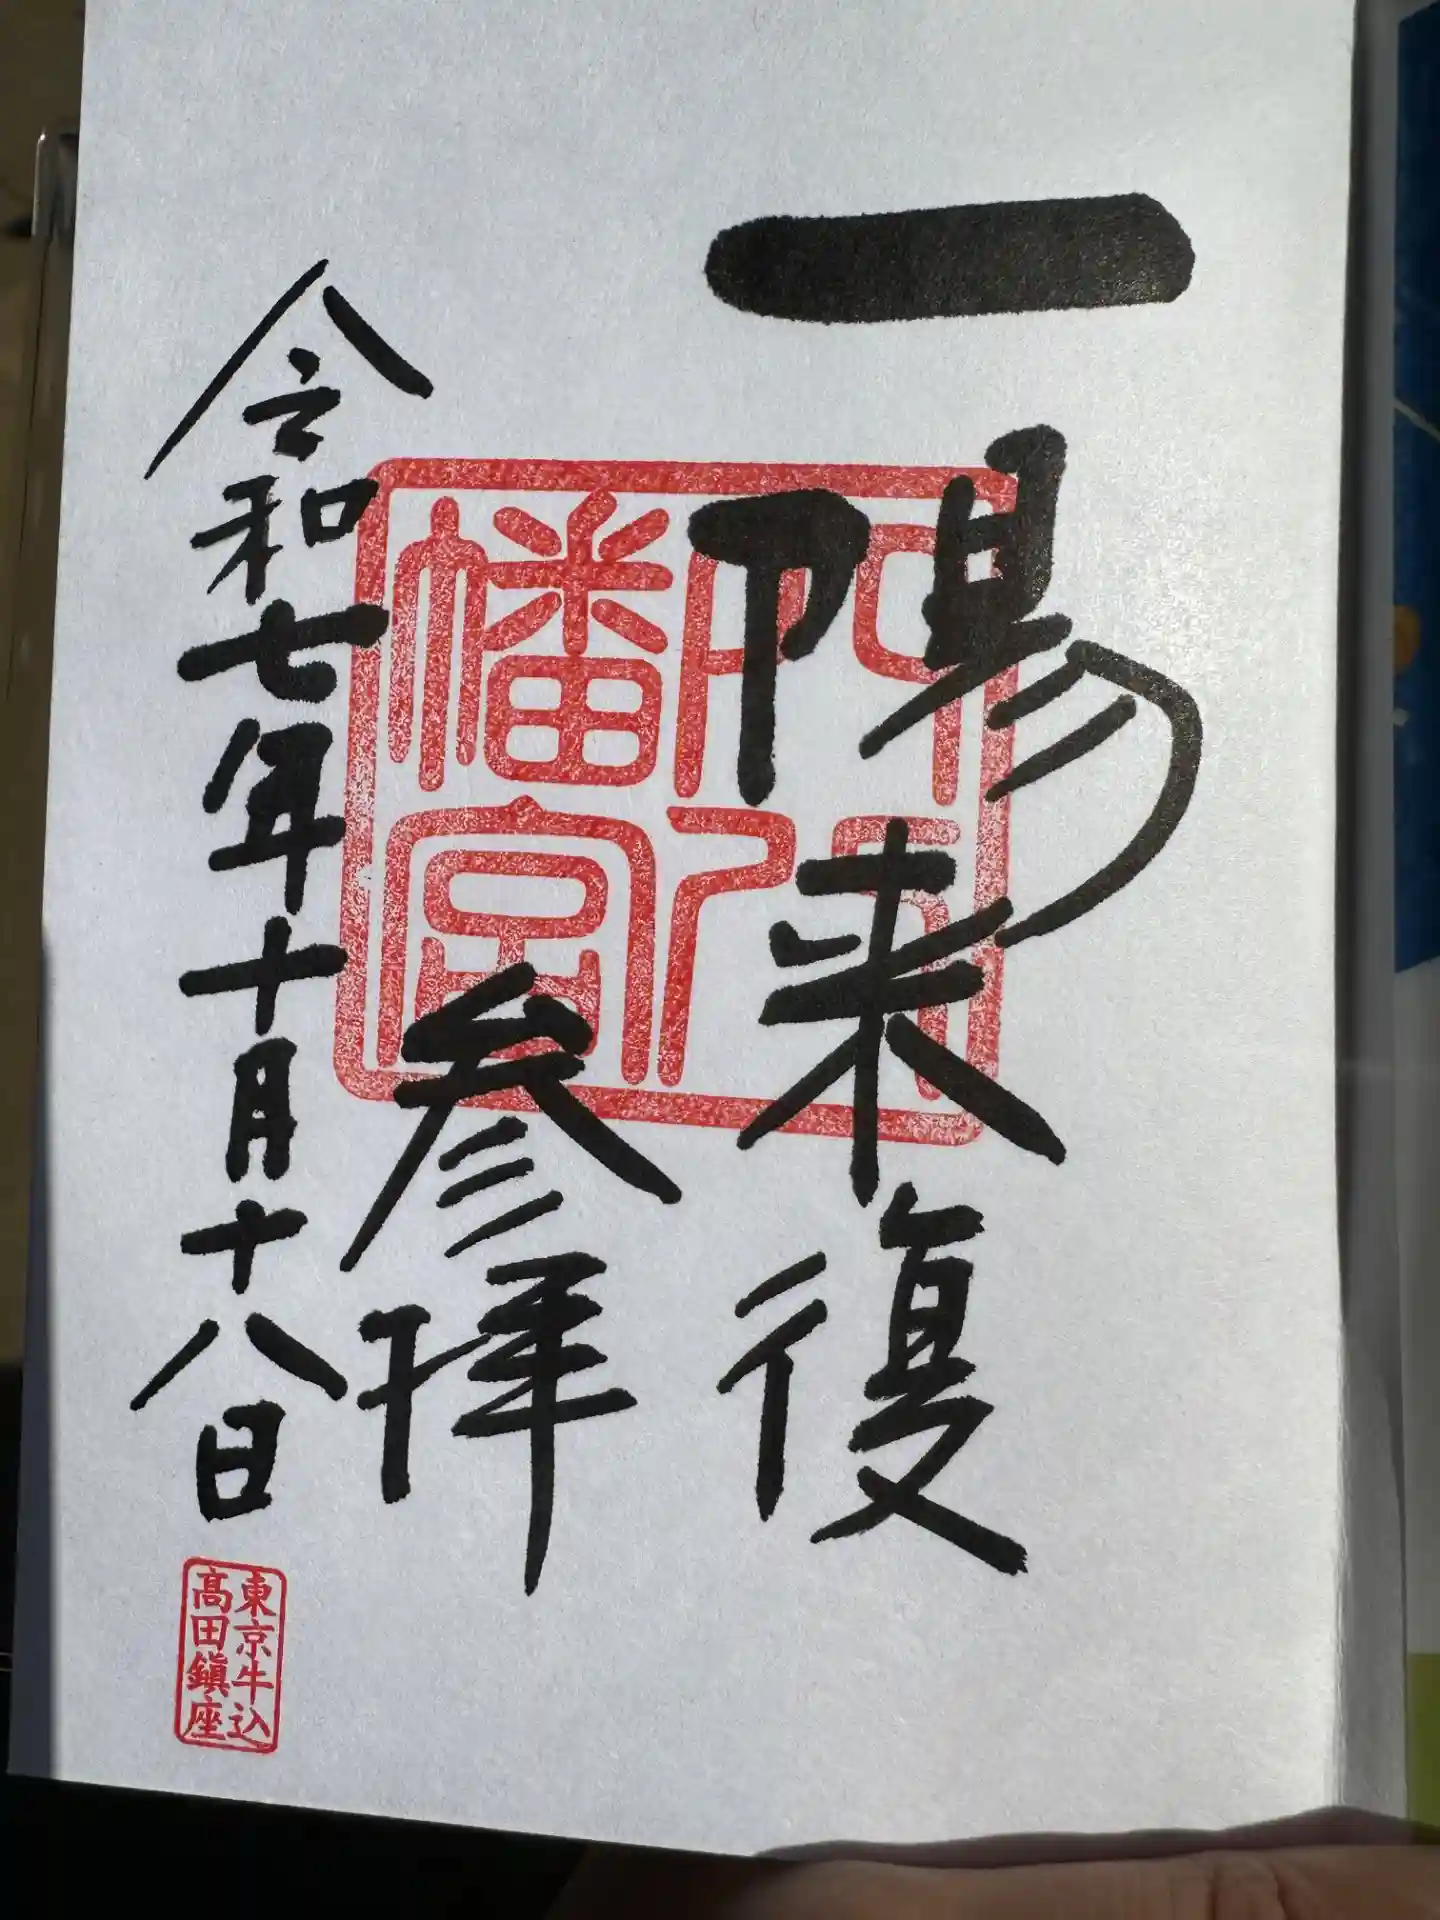 一陽来復
参拝
令和七年十月十八日
穴八幡宮
東京牛込
高田鎮座